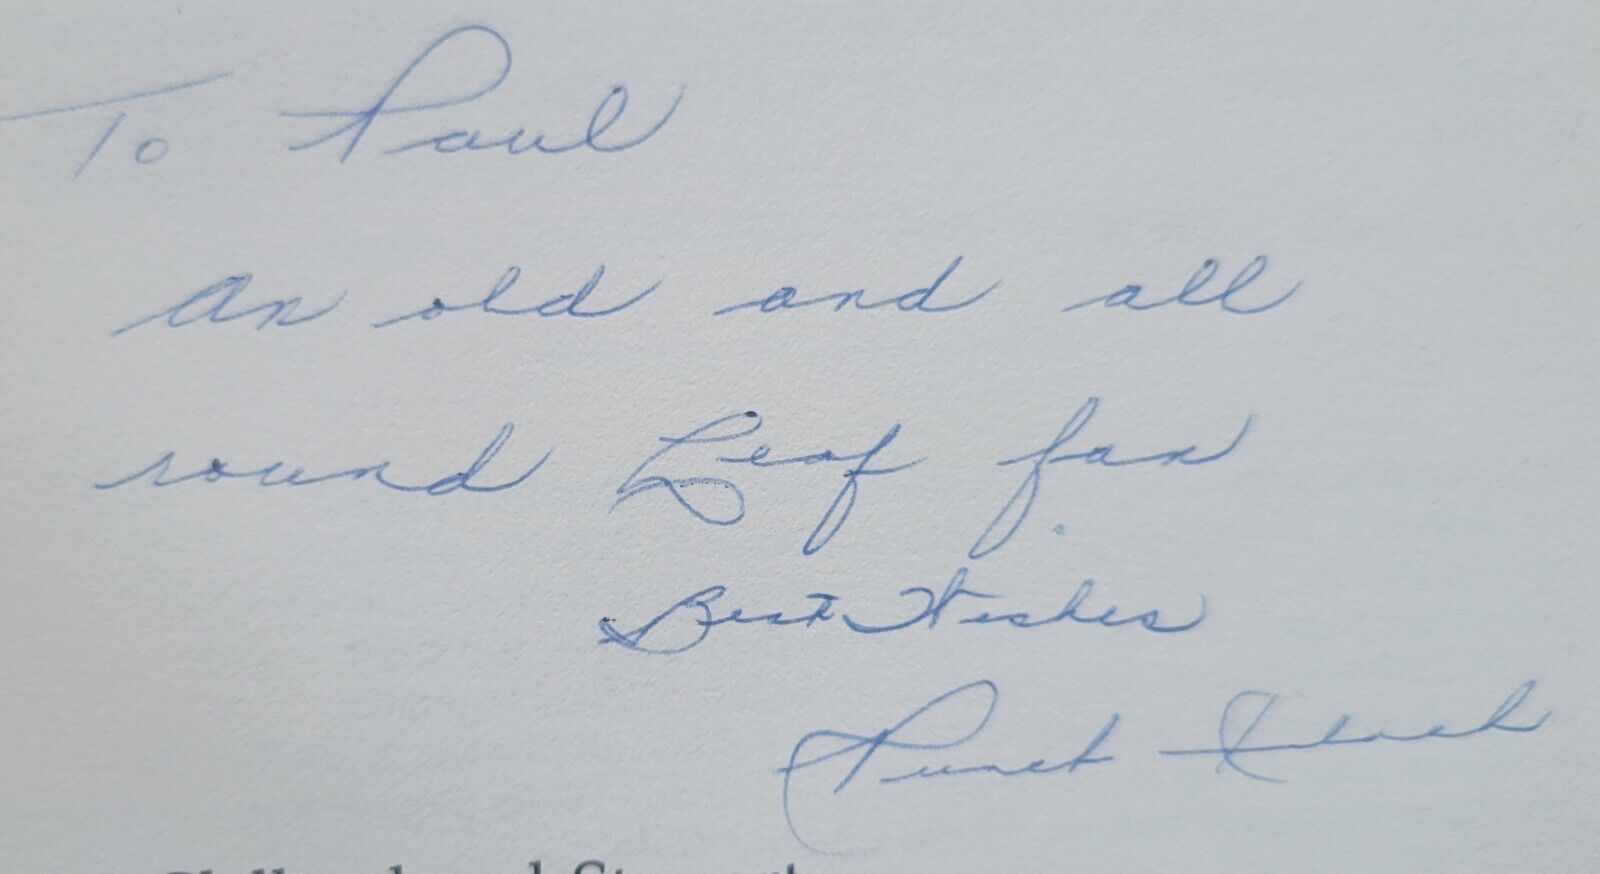 To Paul
An old and all
round Leaf fan.
Best Wishes
Punch Imlach